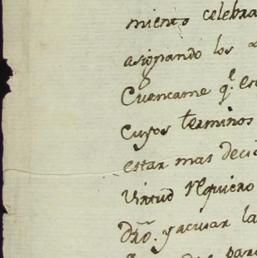 miento celebra
asignando los
Cuencame q.e es
Cuyos terminos
estar mas deci
Virtud requiero
Dro. y acusar la